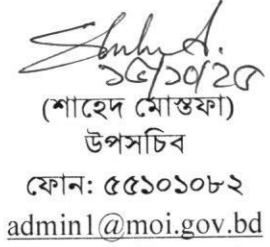 ১৫/১০/২৫
(শাহেদ মোস্তফা)
উপসচিব
ফোন: ৫৫১০১০৮২
admin1@moi.gov.bd